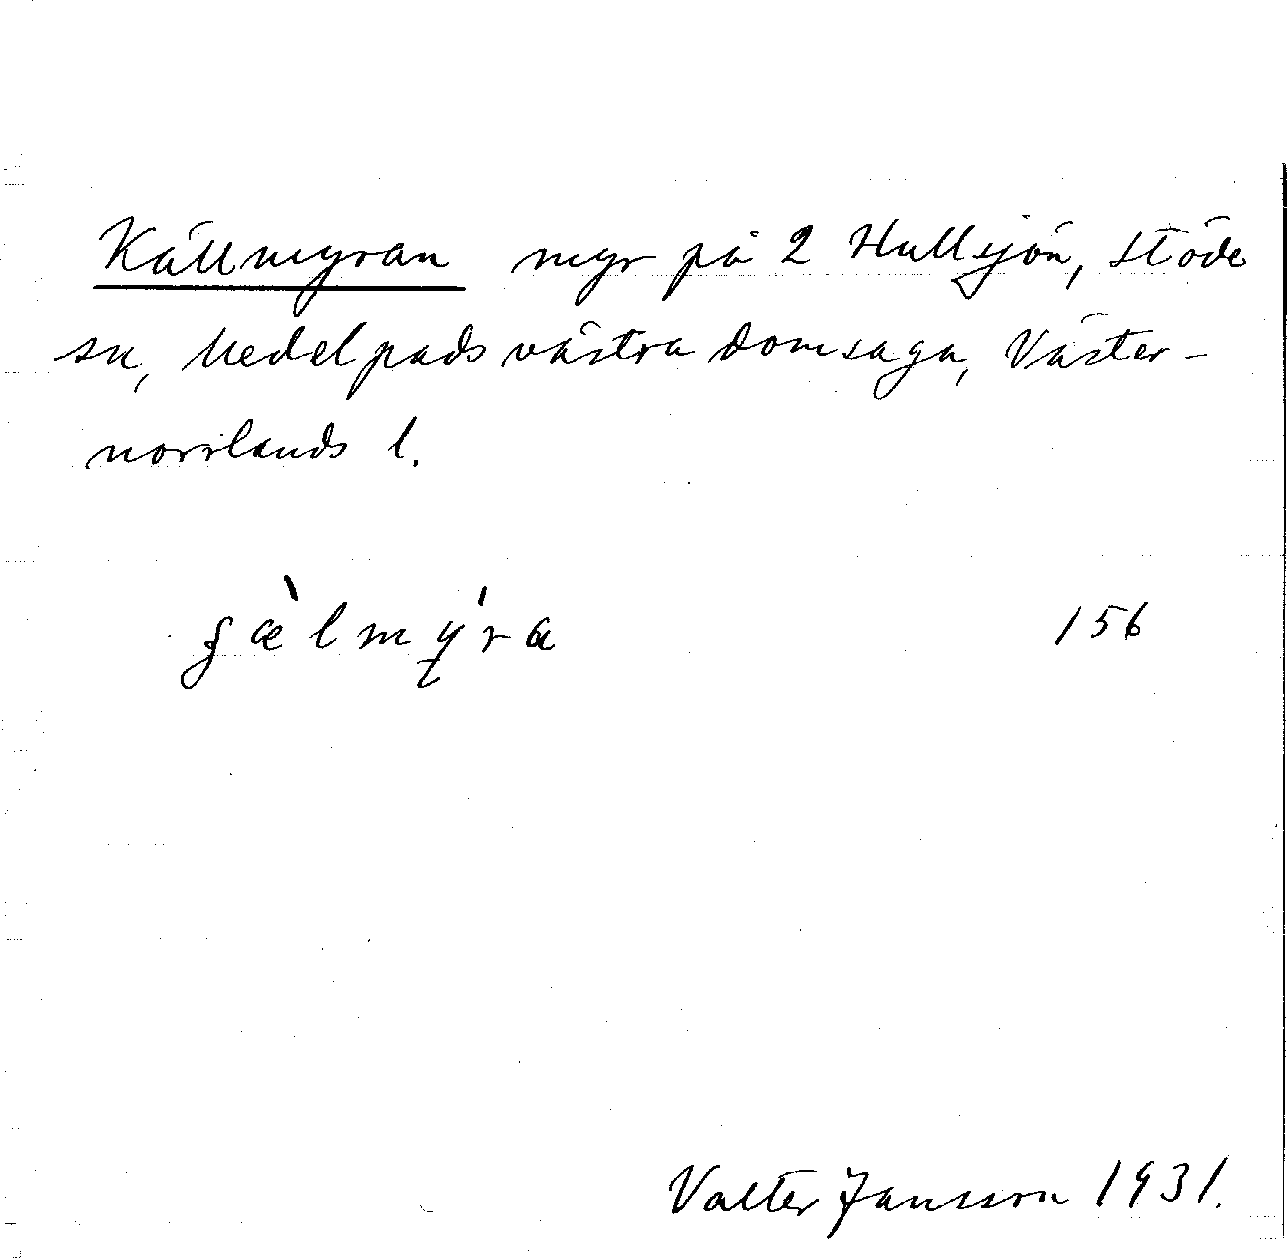 Källmyran myr på 2 Hullsjön, Stöde
sn, Medelpads västra domsaga, Väster-
norrlands l.
156
Valter Jansson 1931.